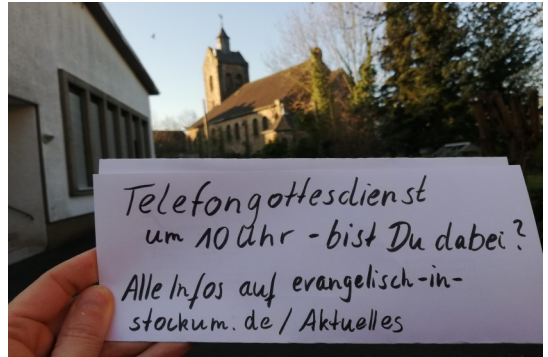 Telefongottesdienst
um 10 Uhr - bist Du dabei?
Alle Infos auf evangelisch-in-
stockum.de/Aktuelles